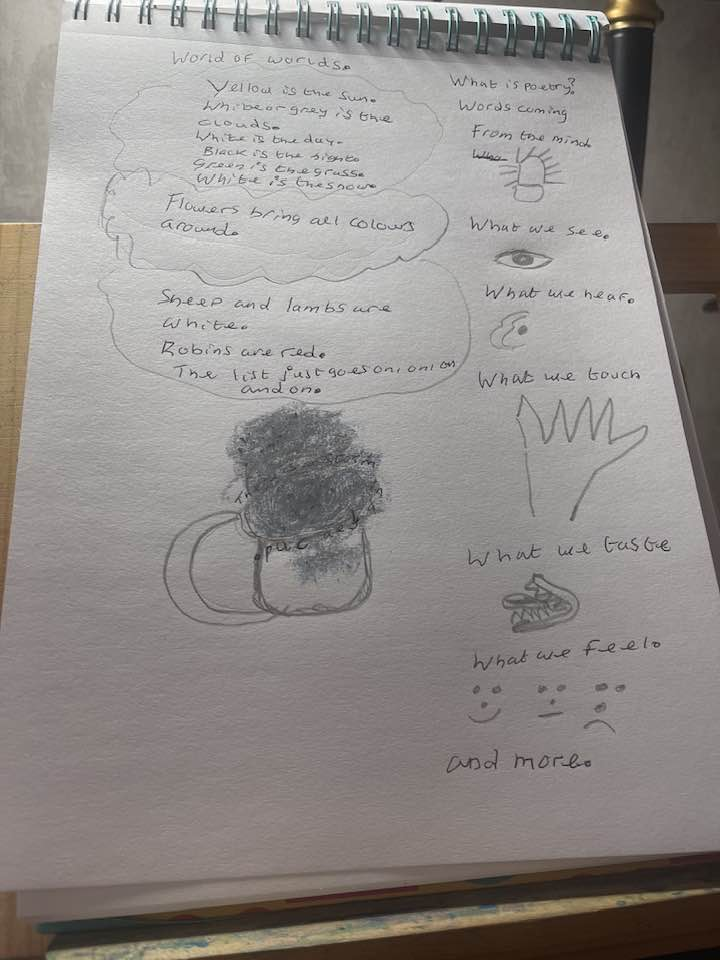 World of worlds.
Yellow is the sun.
White or grey is the
clouds.
White is the day.
Black is the night.
Green is the grass.
White is the snow.
Flowers bring all colours
around.
Sheep and lambs are
white.
Robins are red.
The list just goes on, on on
and on.
What is poetry?
Words coming
From the mind
What we see.
What we hear.
What we touch
What we taste
What we feel.
and more.